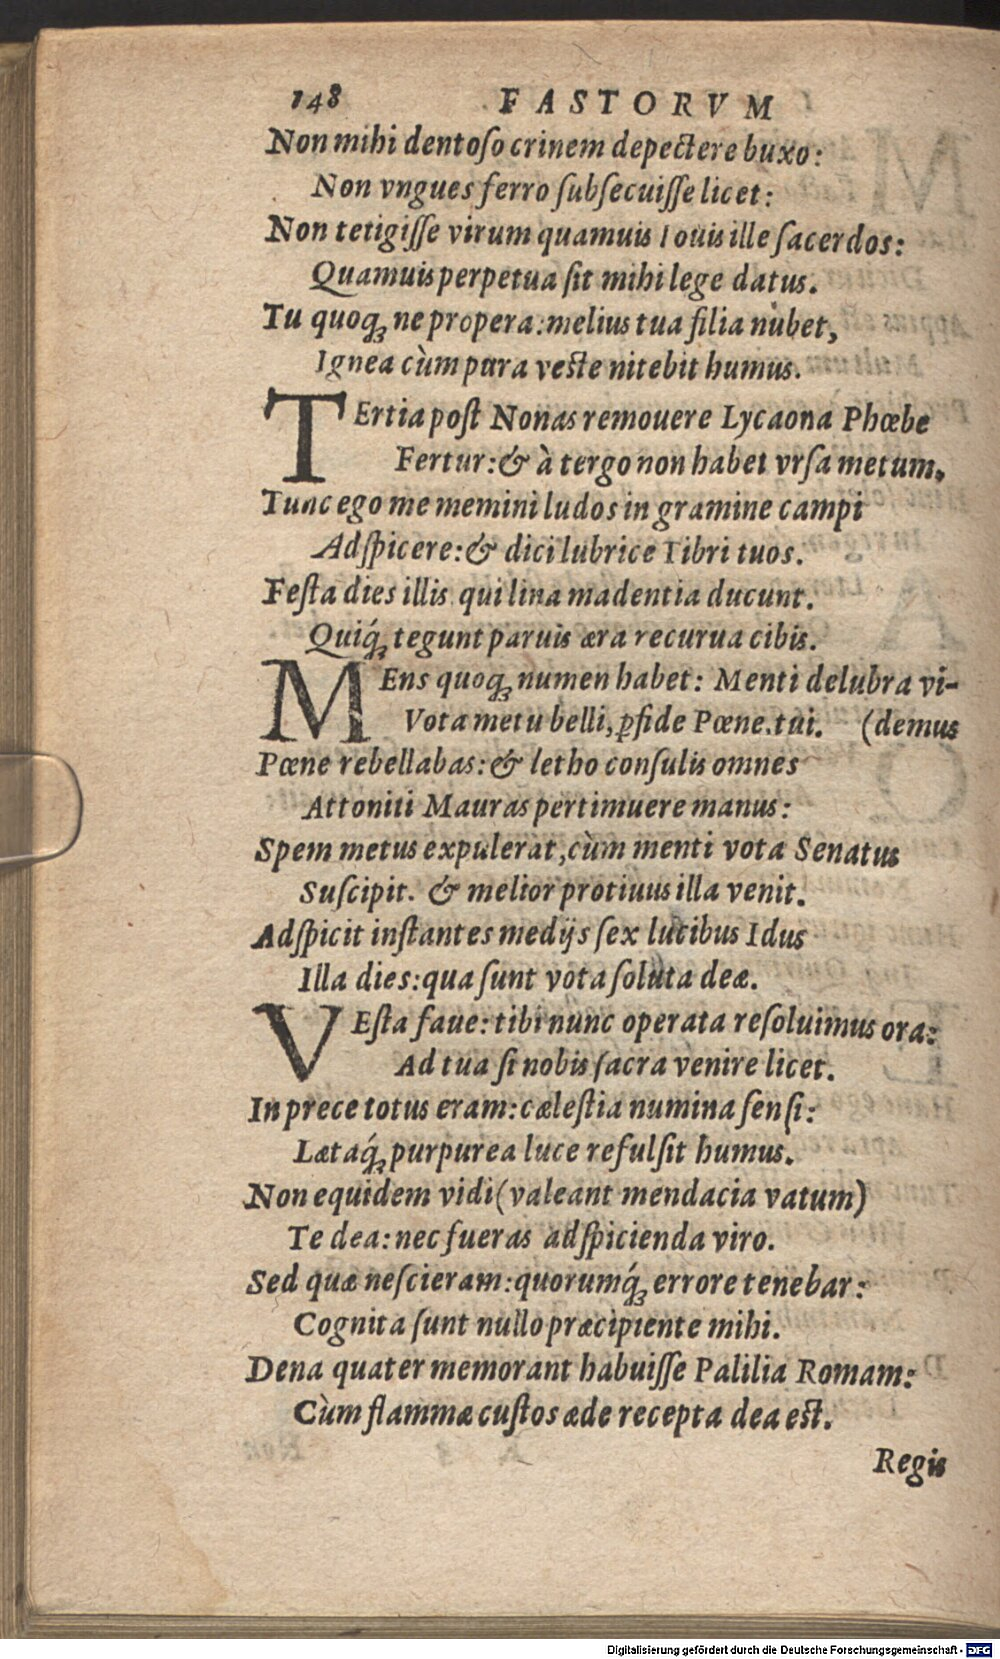 148 FASTORVM
Non mihi dentoſo crinem depectere buxo:
Non vngues ferro ſubſecuiſſe licet:
Non tetigiſſe virum quamuis Iouis ille ſacerdos:
Quamuis perpetua ſit mihi lege datus.
Tu quoqꝫ ne propera: melius tua filia nubet,
Ignea cùm pura veste nitebit humus.
TErtia poſt Nonas remouere Lycaona Phœbe
Fertur: & à tergo non habet vrſa metum.
Tunc ego me memini ludos in gramine campi
Adſpicere: & dici lubrice Tibri tuos.
Feſta dies illis qui lina madentia ducunt.
Quiq́ꝫ tegunt paruis æra recurua cibis.
MEns quoqꝫ numen habet: Menti delubra vi-
Vota metu belli, ꝑfide Pœne, tui. (demus
Pœne rebellabas: & letho conſulis omnes
Attoniti Mauras pertimuere manus:
Spem metus expulerat, cùm menti vota Senatus
Suſcipit. & melior protinus illa venit.
Adſpicit inſtantes medijs ſex lucibus Idus
Illa dies: qua ſunt vota ſoluta deæ.
VEſta faue: tibi nunc operata reſoluimus ora:
Ad tua ſi nobis ſacra venire licet.
In prece totus eram: cæleſtia numina ſenſi:
Lætaq́ꝫ purpurea luce refulſit humus.
Non equidem vidi (valeant mendacia vatum)
Te dea: nec fueras adſpicienda viro.
Sed quæ neſcieram: quorumq́ꝫ errore tenebar:
Cognita ſunt nullo præcipiente mihi.
Dena quater memorant habuiſſe Palilia Romam:
Cùm flammæ cuſtos æde recepta dea est.
Regis
Digitalisierung gefördert durch die Deutsche Forschungsgemeinschaft - DFG